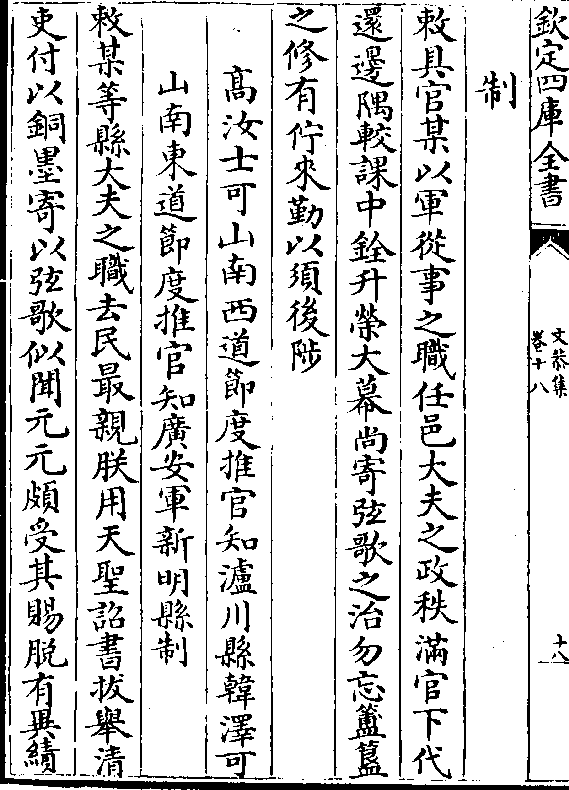 欽定四庫全書
文恭集
卷十八
十八
制
敕具官某以軍從事之職任邑大夫之政秩滿官下代
還邊隅較課中銓升榮大幕尚寄弦歌之治勿忘簠簋
之修有佇來勤以須後陟
高汝士可山南西道節度推官知瀘川縣韓澤可
山南東道節度推官知廣安軍新明縣制
敕某等縣大夫之職去民最親朕用天聖詔書拔舉清
吏付以銅墨寄以弦歌似聞元元頗受其賜脫有異績